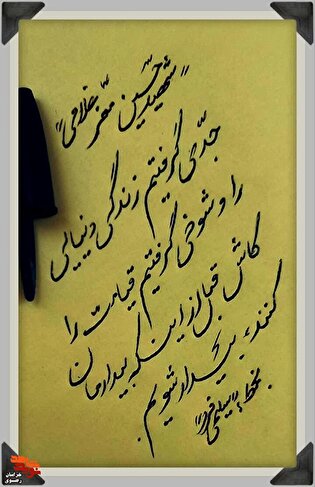 "شهید حسین معز غلامی"
جدّی گرفتیم زندگی دنیایی
را و شوخی گرفتیم قیامت را
کاش قبل از اینکه بیدارمان
کنند، بیدار شویم.
بخط: "سیلمی فرد"
خراسان
رضوی